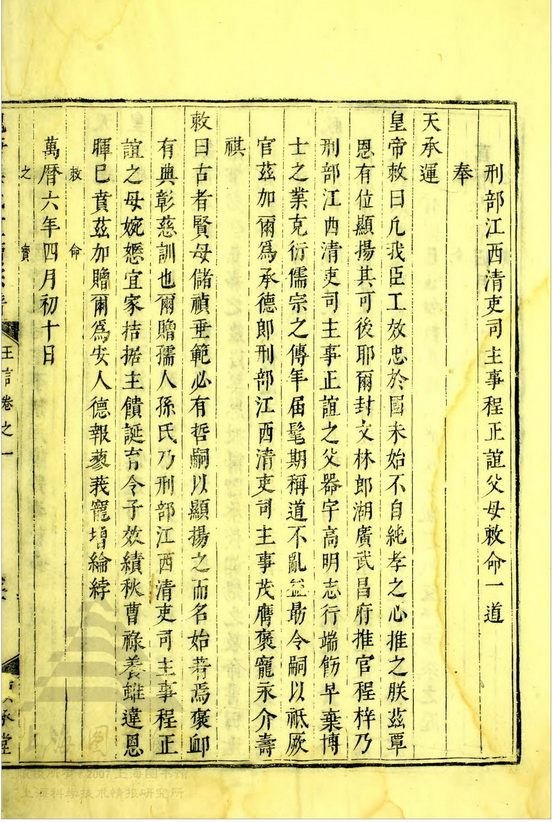 刑部江西清吏司主事程正誼父母敕命一道
奉
天承運
皇帝敕曰凡我臣工效忠於國未始不自純孝之心推之朕茲覃
恩有位顯揚其可後耶爾封文林郎湖廣武昌府推官程梓乃
刑部江西清吏司主事正誼之父器宇高明志行端飭早棄博
士之業克衍儒宗之傳年屆髦期稱道不亂益勗令嗣以祗厥
官茲加爾為承德郎刑部江西清吏司主事茂膺褒寵永介壽
祺
敕曰古者賢母儲禎垂範必有哲嗣以顯揚之而名始著焉褒卹
有典彰慈訓也爾贈孺人孫氏乃刑部江西清吏司主事程正
誼之母婉嫕宜家拮据主饋誕育令子效績秋曹祿養雖違恩
暉已賁茲加贈爾為安人德報蓼莪寵增綸綍
敕命
萬曆六年四月初十日
之寶
王言卷之一
承堂
版权所有(2007)上海图书馆
上海科学技术情报研究所